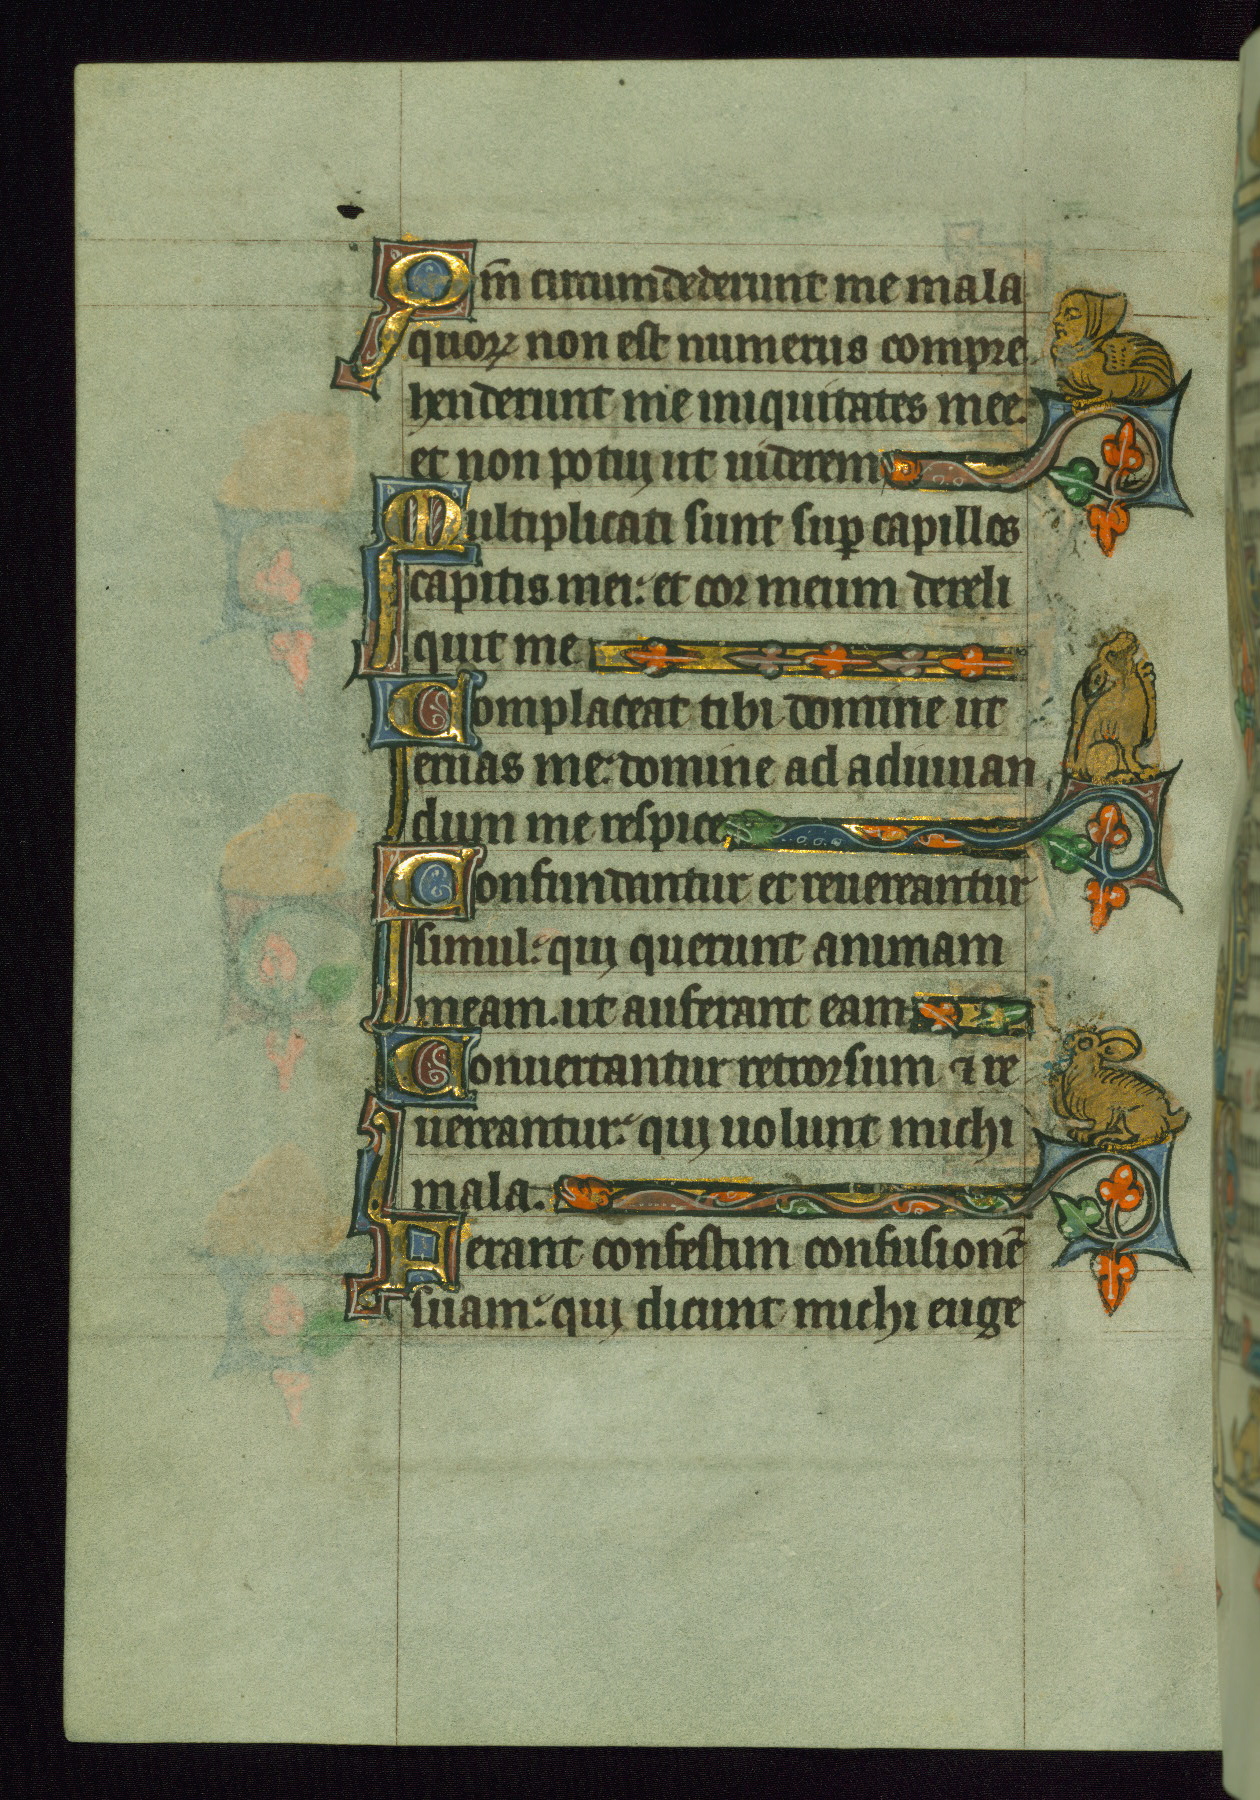 Qm̄ circumdederunt me mala
quoꝝ non est numerus compre
henderunt me iniquitates mee.
et non potuj ut uiderem
Multiplicati sunt suꝑ capillos
capitis mei: et cor meum dereli
quit me
Complaceat tibi domine ut
eruas me: domine ad adiuuan
dum me respice
Confundantur et reuereantur
simul: quj querunt animam
meam. ut auferant eam
Conuertantur retrorsum ⁊ re
uereantur: quj uolunt michi
mala.
Ferant confestim confusionē
suam: quj dicunt michi euge